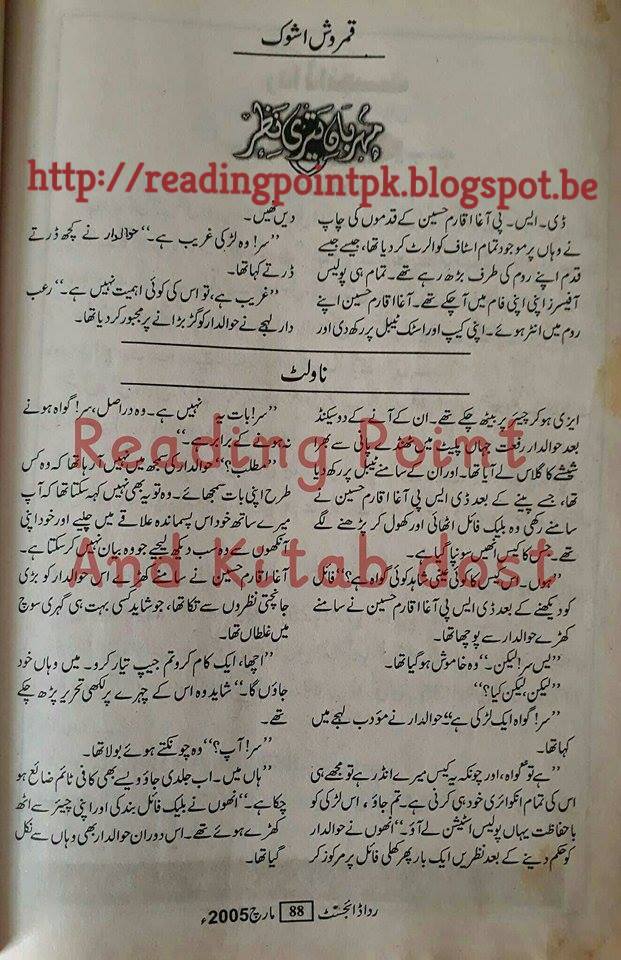 قمروش اشوک
مہرباں تیری نظر
http://readingpointpk.blogspot.be
ڈی۔ ایس۔ پی آغا اقارم حسین کے قدموں کی چاپ
نے وہاں پر موجود تمام اسٹاف کو الرٹ کر دیا تھا، جیسے جیسے
قدم اپنے روم کی طرف بڑھ رہے تھے۔ تمام ہی پولیس
آفیسرز اپنی اپنی فام میں آ چکے تھے۔ آغا اقارم حسین اپنے
روم میں انٹر ہوئے۔ اپنی کیپ اور اسٹک ٹیبل پر رکھ دی اور
دیں تھیں۔
’’سر! وہ لڑکی غریب ہے۔‘‘ حوالدار نے کچھ ڈرتے
ڈرتے کہا تھا۔
’’غریب ہے، تو اس کی کوئی اہمیت نہیں ہے۔‘‘ رعب
دار لہجے نے حوالدار کو گڑبڑانے پر مجبور کر دیا تھا۔
ناولٹ
ایزی ہو کر چیئر پر بیٹھ چکے تھے۔ ان کے آنے کے دو سیکنڈ
بعد حوالدار رفعت جہاں پلیٹ میں ٹھنڈے پانی سے بھرا
شیشے کا گلاس لے آیا تھا۔ اور ان کے سامنے ٹیبل پر رکھ دیا
تھا، جسے پینے کے بعد ڈی ایس پی آغا اقارم حسین نے
سامنے رکھی وہ بلیک فائل اٹھائی اور کھول کر پڑھنے لگے
تھے۔ جس کا کیس انھیں سونپا گیا ہے۔
’’ہوں۔ اس کیس کا کوئی عینی شاہد کوئی گواہ ہے؟‘‘ فائل
کو دیکھنے کے بعد ڈی ایس پی آغا اقارم حسین نے سامنے
کھڑے حوالدار سے پوچھا تھا۔
’’یس سر! لیکن۔‘‘ وہ خاموش ہو گیا تھا۔
’’لیکن، لیکن کیا؟‘‘
’’سر! گواہ ایک لڑکی ہے‘‘ حوالدار نے مؤدب لہجے میں
کہا تھا۔
’’ہے تو گواہ، اور چونکہ یہ کیس میرے انڈر ہے تو مجھے ہی
اس کی تمام انکوائری خود ہی کرنی ہے۔ تم جاؤ، اس لڑکی کو
باحفاظت یہاں پولیس اسٹیشن لے آؤ۔‘‘ انھوں نے حوالدار
کو حکم دینے کے بعد نظریں ایک بار پھر کھلی فائل پر مرکوز کر
’’سر! بات یہ نہیں ہے۔ وہ دراصل، سر! گواہ ہونے
نہ ہونے کے برابر ہے۔‘‘
’’مطلب؟‘‘ حوالدار کی سمجھ میں نہیں آ رہا تھا کہ وہ کس
طرح اپنی بات سمجھائے۔ وہ تو یہ بھی نہیں کہہ سکتا تھا کہ آپ
میرے ساتھ خود اس پسماندہ علاقے میں چلیے اور خود اپنی
آنکھوں سے وہ سب دیکھ لیجیے جو وہ بیان نہیں کر سکتا ہے۔
آغا اقارم حسین نے سامنے کھڑے اس حوالدار کو بڑی
جانچتی نظروں سے تکا تھا، جو شاید کسی بہت ہی گہری سوچ
میں غلطاں تھا۔
’’اچھا، ایک کام کرو تم جیپ تیار کرو۔ میں وہاں خود
جاؤں گا۔‘‘ شاید وہ اس کے چہرے پر لکھی تحریر پڑھ چکے
تھے۔
’’سر! آپ؟‘‘ وہ چونکتے ہوئے بولا تھا۔
’’ہاں میں۔ اب جلدی جاؤ ویسے بھی کافی ٹائم ضائع ہو
چکا ہے۔‘‘ انھوں نے بلیک فائل بند کی اور اپنی چیئر سے اٹھ
کھڑے ہوئے تھے۔ اس دوران حوالدار بھی وہاں سے نکل
گیا تھا۔
Reading Point
And Kitab dost
ردا ڈائجسٹ 88 مارچ 2005ء